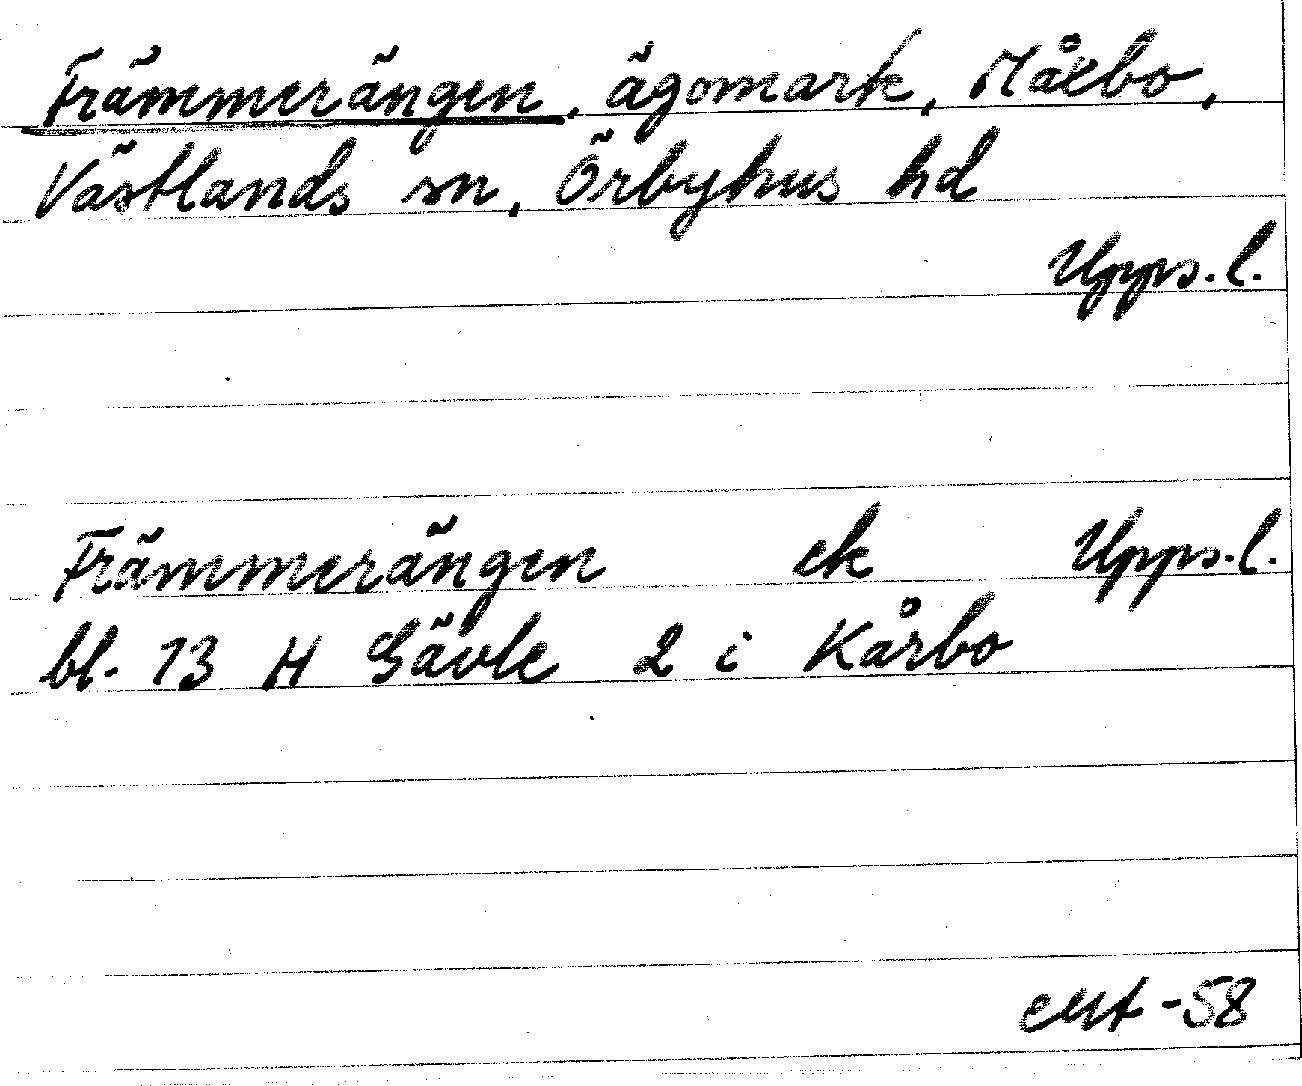 Främmerängen, ägomark, Måkbo,
Västlands sn, Örbyhus hd
Upps. l.
Främmerängen ek Upps. l.
bl. 13 H Gävle 2 i Kårbo
-58